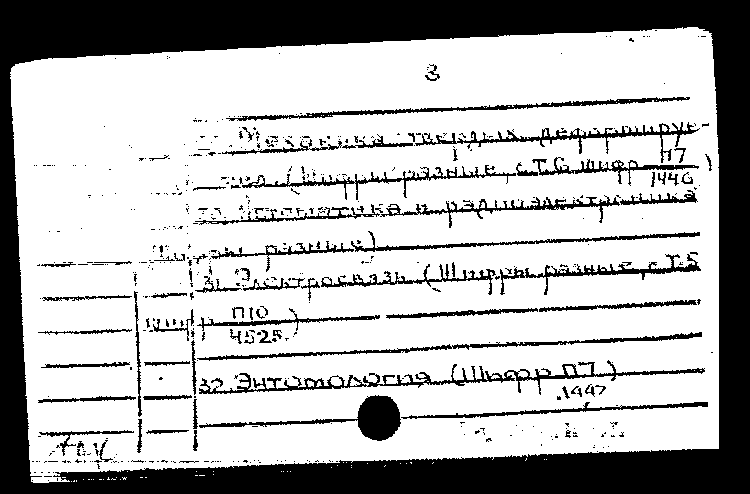 3
Механика твердых деформируе-
тел. (Шифры разные, с Т.6 шифр П7/1446)
30. Автоматика и радиоэлектроника
Шифры разные)
31. Электросвязь (Шифры разные, с Т.5
шифр П10/4525.)
32. Энтомология (Шифр П7/1447)